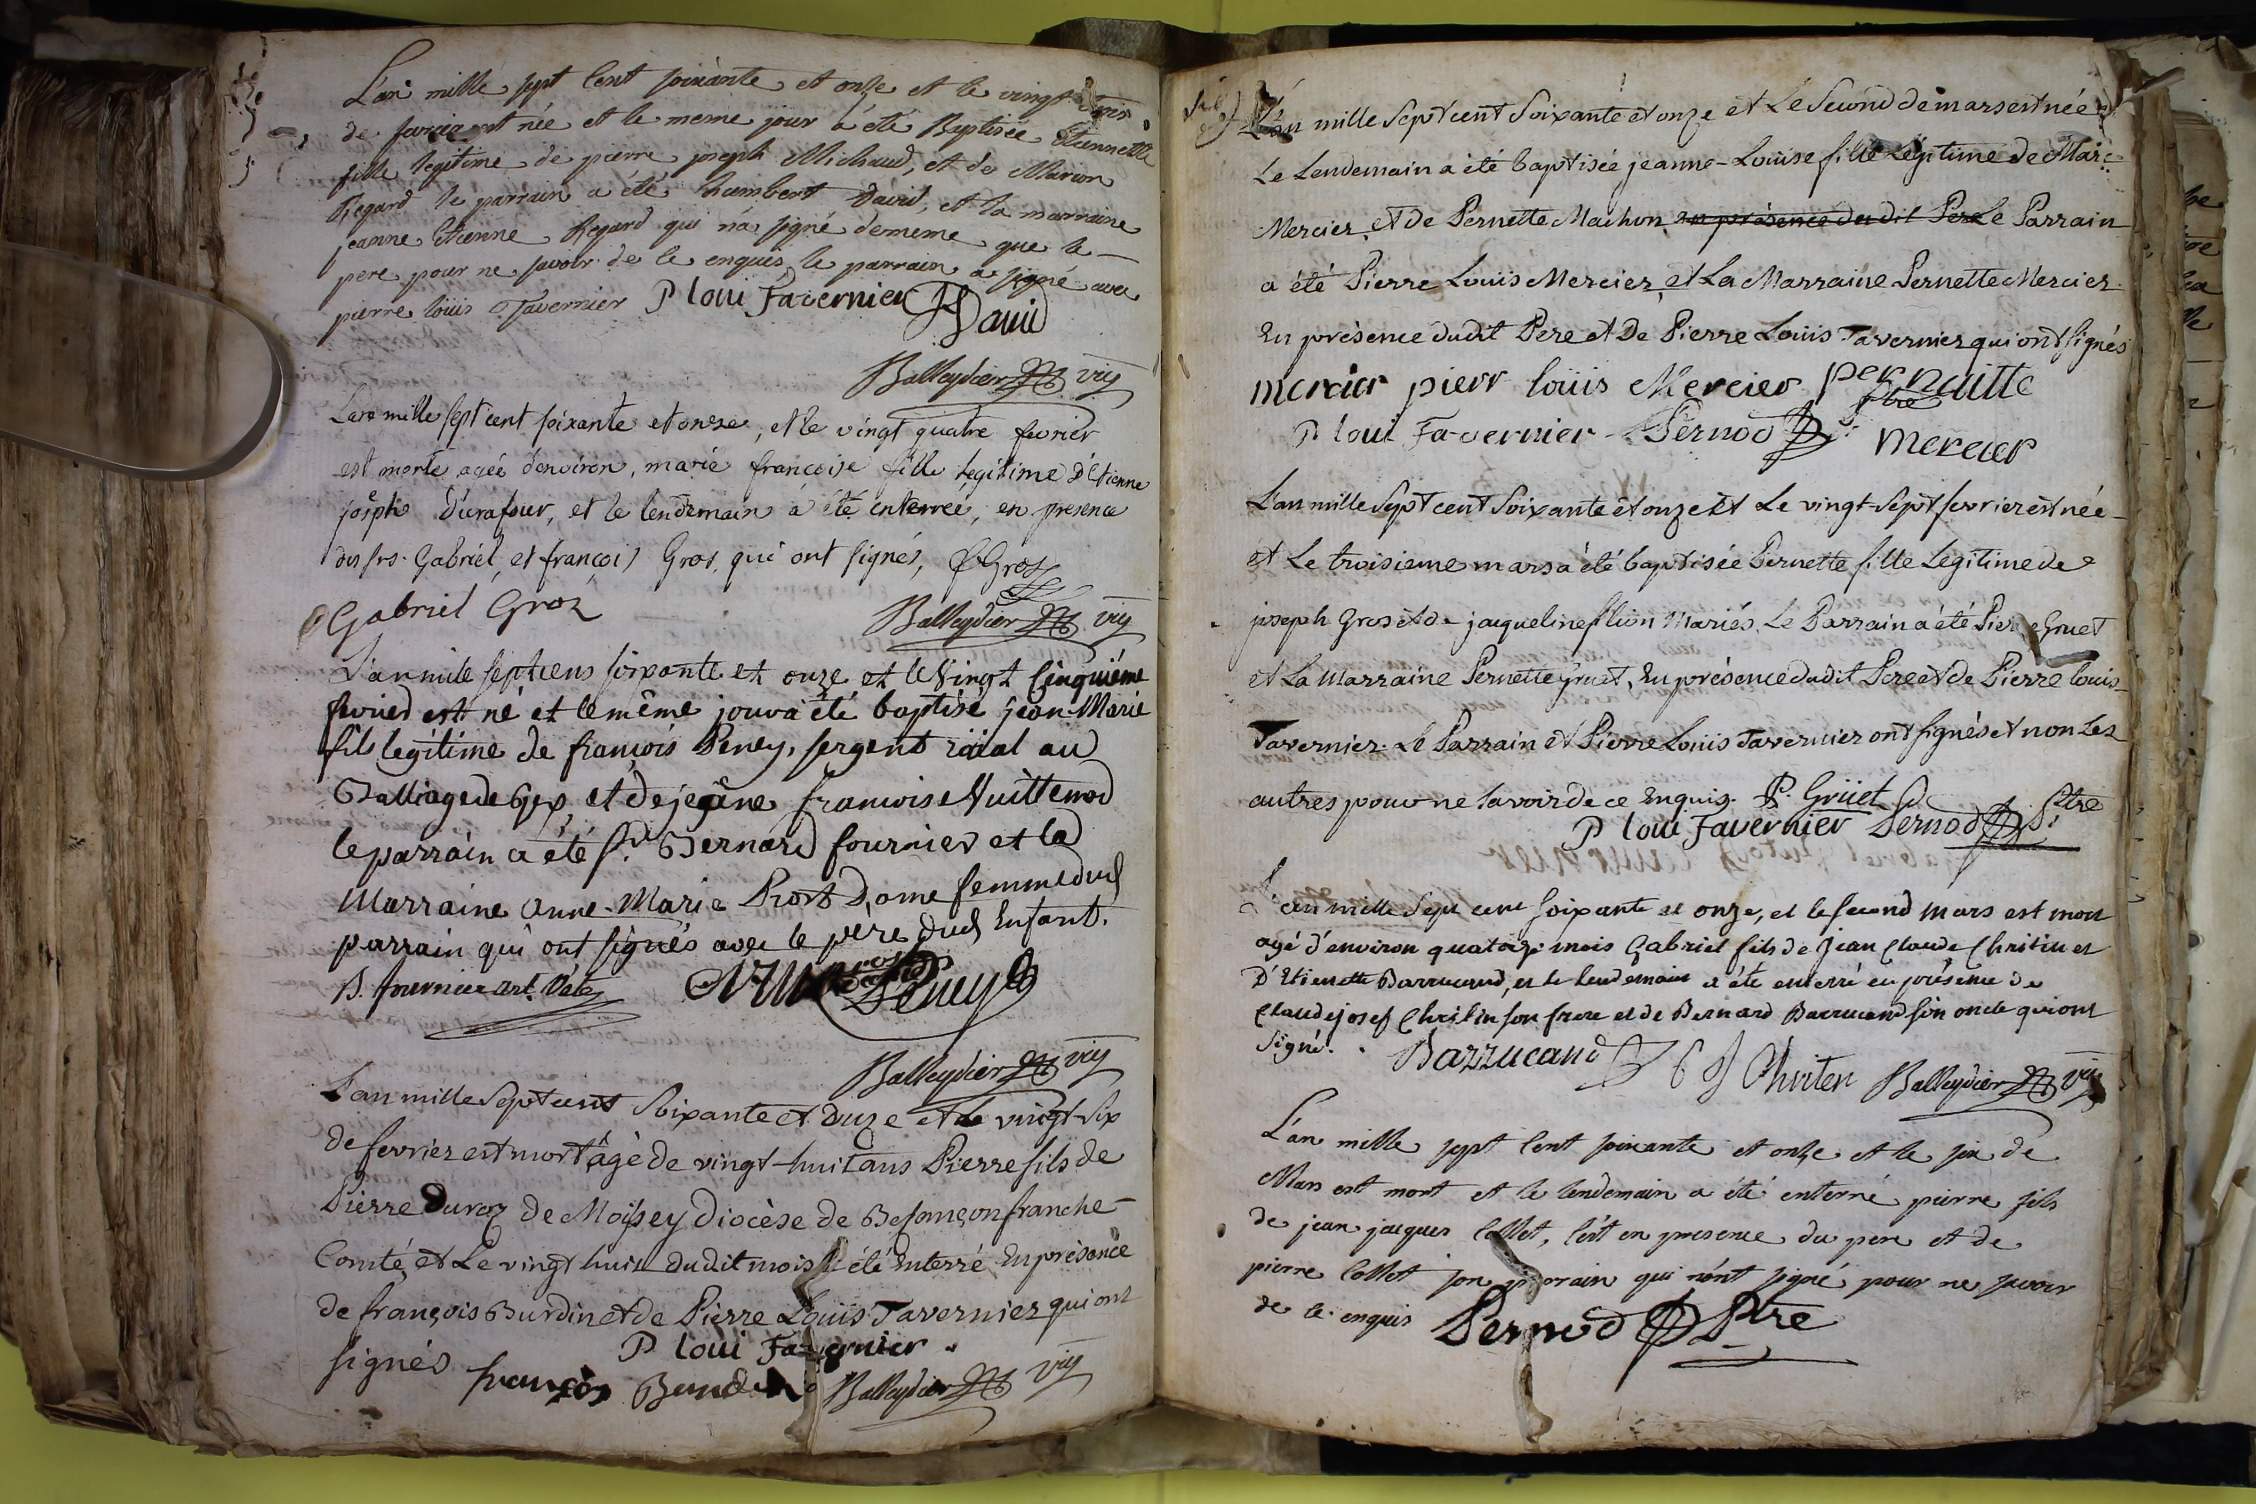 L'an mille sept Cent soixante et onze et le vingt trois
de fevrier est née et le meme jour a été Baptisée Etiennette
fille legitime de pierre joseph Michaud, et de Marion
Regard le parrain a été humbert David, et la marraine
jeanne Etienne Regard qui n'a signé dememe que le
pere pour ne savoir de ce enquis, le parrain a signé avec
pierre loüis Tavernier P loui Favernier David
Balleydier viç
L'an mille sept cent soixante et onze, et le vingt quatre fevrier
est morte agée d'environ, marie francoise fille legitime D'Etienne
joseph Durafour, et le lendemain a été enterreé, en presence
des srs. Gabriel, et françois Gros, qui ont signés, f Gros
Gabriel Gros
Balleydier viç
L'an mile septcens soixante et onze et le Vingt Cinquiéme
fevried est né et le même jour a été baptisé jean-Marie
fils legitime de françois Peney, sergent roial au
Balliage de Gex, et de jeane francoise Vuittenod
le parrain a été sr. Bernard fournier et la
Marraine Anne-Marie Prost Dome femme dud
parrain qui ont signés avec le père dud Enfant.
B. fournier Peney
Balleydier viç
L'an mille Sept cent Soixante et Onze et Le vingt-six
de fevrier est mort âgè de vingt-huit ans Pierre fils de
Pierre Duroz de Moissey Diocèse de Besançon franche-
Comté, et Le vingt huit dudit mois a été Enterré En présence
de françois Burdin et de Pierre Loüis Tavernier qui ont
signés P loui Favernier
françois Burdin Balleydier viç
L'an mille Sept cent Soixante et onze et Le Second de mars est née
Le Lendemain a été baptisée jeanne-Loüise fille Legitime de Marc
Mercier, et de Pernette Machon, en présence du dit Pere Le Parrain
a été Pierre Louis Mercier, et La Marraine Pernette Mercier.
En présence dudit Pere et de Pierre Loüis Tavernier qui ont signés
mercier pierr loüis Mercier pernaitte
P loui Favernier Pernod Ptre mercier
L'an mille Sept cent Soixante et onze et Le vingt-sept fevrier est née
et Le troisieme mars a été baptisée Pernette fille Legitime de
joseph Gros et de jaqueline flion Mariés, Le Parrain a été Pierre Gruet
et La Marraine Pernette Gruet, En présence dudit Pere et de Pierre louis
Tavernier. Le Parrain et Pierre Louis Tavernier ont signés et non Les
autres pour ne savoir de ce Enquis. P. Grüet
P loui Favernier Pernod Ptre
L'an mille Sept cent soixante et onze, et le second mars est mort
agé d'environ quatorze mois Gabriel fils de Jean Claude Christin et
D'Etienette Barrucand, et le lendemain a été enterré en présence de
Claude josef Christin son frere et de Bernard Barrucand son oncle qui ont
signé. Barrucand C J Chriten Balleydier viç
L'an mille sept Cent soixante et onze et le six de
Mars est mort et le lendemain a été enterré pierre fils
de jean jacques Collet, C'est en presence du pere et de
pierre Collet son parrain qui n'ont signé pour ne savoir
de ce enquis Pernod Ptre